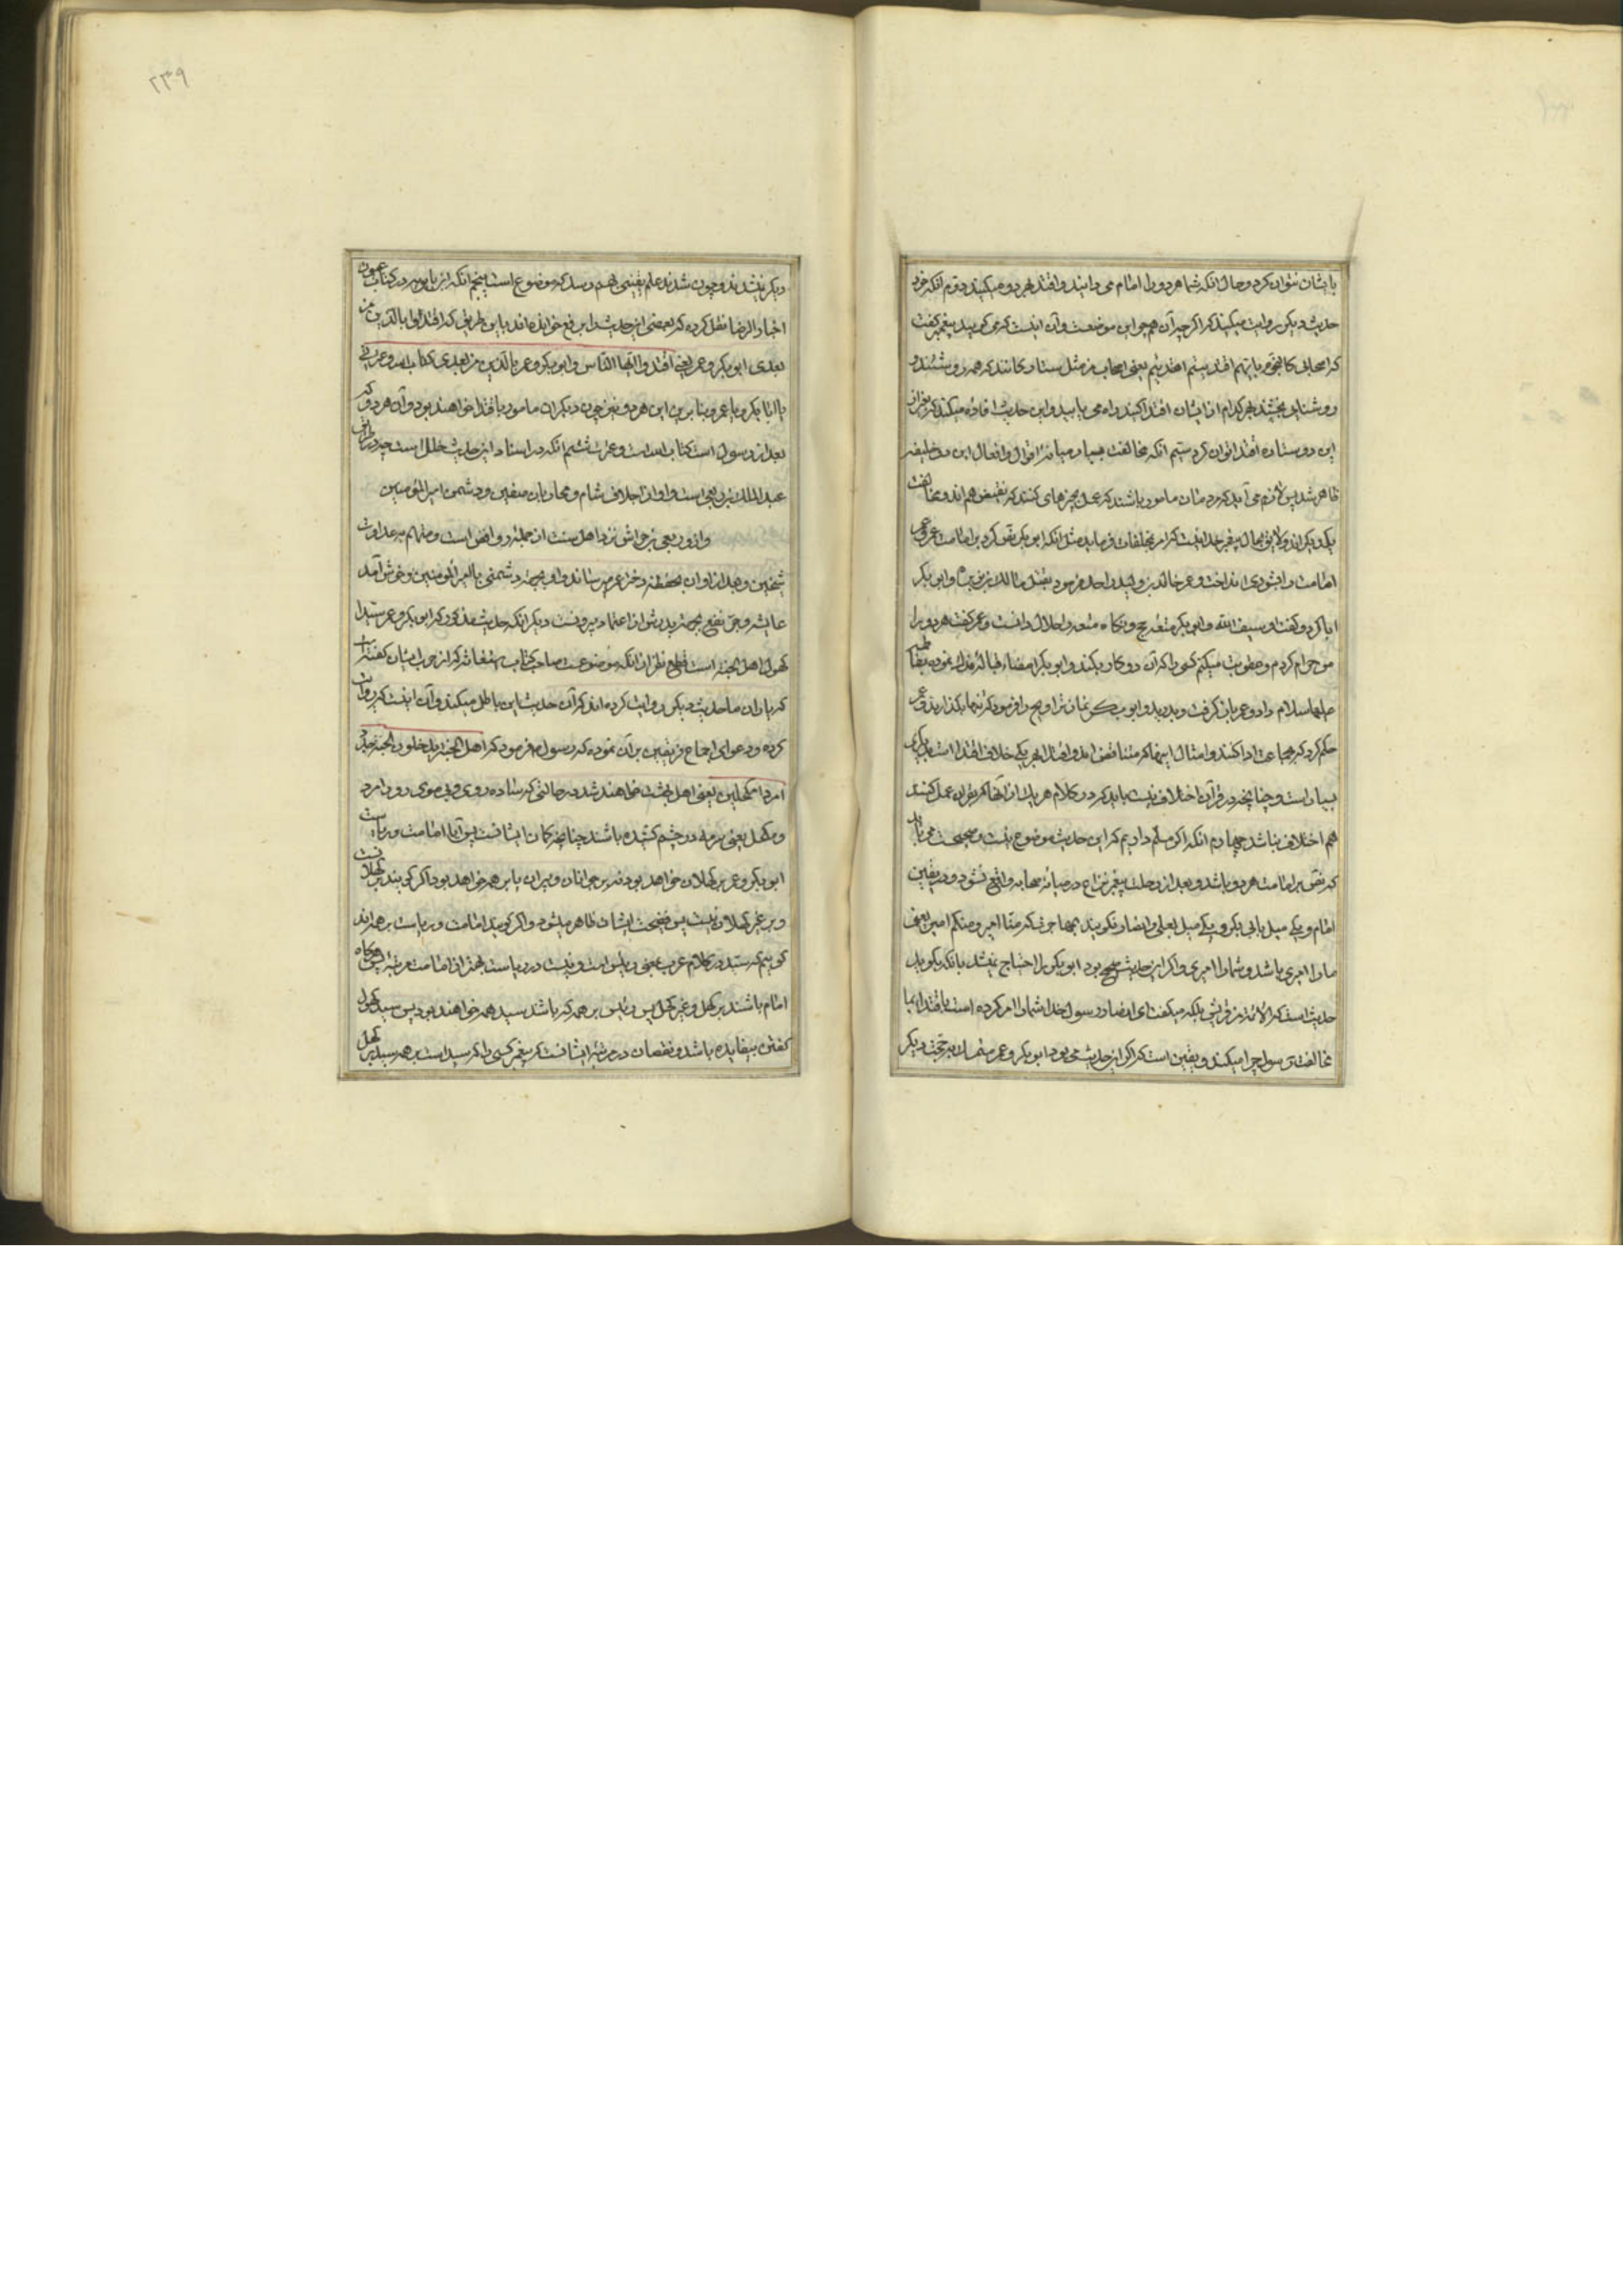 بایشان نتوان کرد و حال انکه شما هر دو را امام می دانید و اقتدا بهر دو میکنید دوم انکه خود
حدیث دیکر روایت میکنید که اکر چه آن هم چو این موضوعست و آن اینست که می کویید پیغمبر کفت
که اصحابی کالنجوم بایهم اقتدیتم اهتدیتم یعنی اصحاب من مثل ستارکانند که همه روشنند و
روشنایی بخشند بهر کدام از ایشان اقتدا کنید راه می یابید و این حدیث افاده میکند که بغیر از
این دو ستاره اقتدا توان کرد سیم انکه مخالفت بسیار میانه اقوال و افعال این دو خلیفه
ظاهر شد پس لازم می آید که مردمان مامور باشند که عمل بچیزهای کنند که نقیض هم اند و مخالفت
یکدیکراند و لایق بحال پیغمبر خدا نیست که امر بخلفان فرماید مثل انکه ابو بکر نص کرد بر امامت عمر و عمر
امامت را بشوری انداخت و عمر خالد بن ولید را حد فرمود بقتل مالک بن نویره و ابو بکر
ابا کرد و کفت او سیف الله و ابی بکر متعه حج و نکاح متعه را حلال دانست و عمر کفت هر دو را
من حرام کردم و عقوبت میکنم کسی را که آن دو کار بکند و ابو بکر امضاء قباله فدک نموده بفاطمه
علیها سلام داد و عمر بازکرفت و بدرید و ابو بکر نماز تراویح را فرمود که تنها بکذارند و عمر
حکم کرد که بجماعت ادا کنند و امثال اینها که متناقض اند و اقتدا بهر یکی خلاف اقتدا است بدیکری
بسیار است و چنانچه در قرآن اختلاف نیست باید که در کلام هر یک از آنها که بقرآن عمل کنند
هم اختلاف نباشد چهارم انکه اکر مسلم داریم که این حدیث موضوع نیست و صحیحست می باید
که نص بر امامت هر دو باشد و بعد از رحلت پیغمبر نزاع در میانه صحابه واقع نشود و در تعیین
امام و یکی میل بابی بکر و یکی میل بعلی و انصار نکویند بمهاجر که منا امیر و منکم امیر یعنی
ما را امیری باشد و شما را امیری و اکر این حدیث صحیح بود ابو بکر را احتیاج نمیشد بانکه بکوید
حدیث است که الائمة من قریش بلکه میکفت ای انصار رسول خدا شما را امر کرده است باقتدا بما
مخالفت رسول چرا میکنید و یقین است که اکر این حدیث می بود ابو بکر و عمر متمسک بحجت دیکر
۲۳۹
دیکر نمیشدند و چون شدند علم یقینی بهم رسد که موضوع است پنجم انکه ابن بابویه در کتاب عیون
اخبار الرضا نقل کرده که بعضی این حدیث را برفع خوانده اند باین طریق که اقتدوا بالذین من
بعدی ابو بکر و عمر یعنی اقتدوا ایها الناس و ابو بکر و عمر بالذین من بعدی کتاب الله و عترتی
یا ابا بکر و یا عمر و بنابرین این هر دو نیز چون دیکران مامور باقتدا خواهند بود و آن هر دو که
بعد از رسول است کتاب الله است و عترت ششم انکه در اسناد این حدیث خلل است چه در
عبد الملک بن ربعی است و او از اجلاف شام و محاربان صفین و دشمن امیر المؤمنین
و از ربعی بن حراش نزد اهل سنت از جمله روافض است و متهم بعداوت
شیخین و بعد از او آن بحفصه دختر عمر میرساند و او بجهة دشمنی بامیر المؤمنین و خوش آمد
عایشه و جر نفع بجهة پدرش از اعتماد بیرونست دیکر انکه حدیث مذکور که ابو بکر و عمر سیدا
کهول اهل الجنه است قطع نظر از انکه موضوعست صاحب کتاب استغاثه که از جواب ایشان کفته است
که یاران ما حدیث دیکر روایت کرده اند که آن حدیث این باطل میکند و آن اینست که روایت
کرده و دعوای اجماع فریقین بر آن نموده که رسول فرمود که اهل الجنة یدخلون الجنة جرد
امردا مکحلین یعنی اهل بهشت خواهند شد در حالتی که ساده روی و بی موی رو و امرد
و مکحل یعنی سرمه در چشم کشیده باشند چنانچه کمان ایشانست پس آیا امامت و ریاست
ابو بکر و عمر بر کهلان خواهد بود نه بر جوانان و پیران یا بر همه خواهد بود اکر کویند بر کهلانست
و بر غیر کهلان نیست پس فضیحت ایشان ظاهر میشود و اکر کویند امامت و ریاست بر همه دارند
کوییم که سید در کلام عرب بمعنی رئیس است و نیست در ریاست بهتر از امامت مرتبه پس هرکاه
امام باشند بر کهل و غیر کهل پس رئیس بر همه که باشد سید همه خواهند بود پس سید کهول
کفتن بیفایده باشد و نقصان در مرتبه ایشانست که پیغمبر کسی را که سید است بر همه سید بر کهل